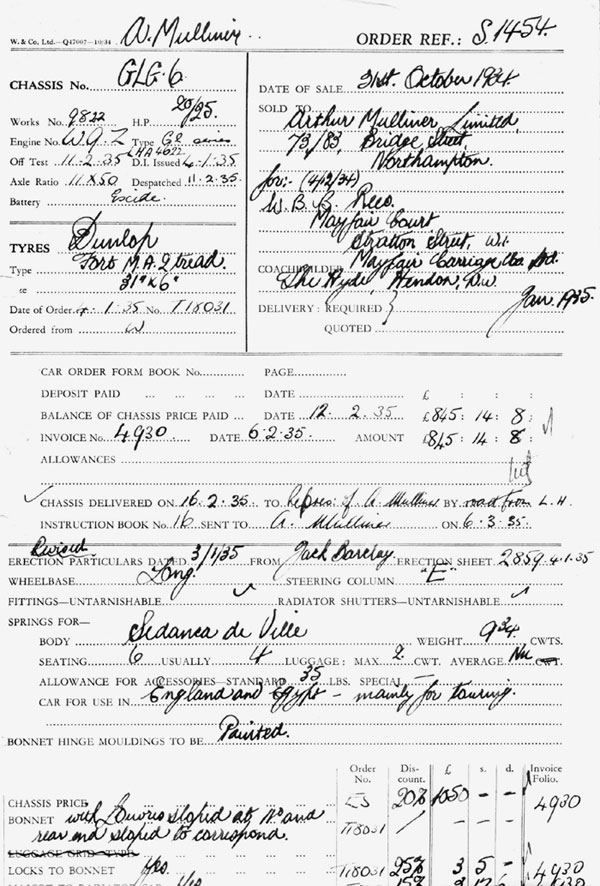 W. & Co. Ltd.—Q47007—10/34 A. Mulliner. ORDER REF.: S.1454.
CHASSIS No. GLG.6.
Works No. 9822 H.P. 20/25.
Engine No. W.9.Z Type G.L. series
LHA 4622
Off Test 11.2.35 D.I. Issued 4.1.35
Axle Ratio 11x50 Despatched 11.2.35.
Battery Exide.
DATE OF SALE 31st. October 1934.
SOLD TO Arthur Mulliner Limited,
73/83, Bridge Street,
Northampton.
for:- (4/12/34)
W. B. B. Rees.
Mayfair Court
Stratton Street, W.1.
COACHBUILDER Mayfair Carriage Co. Ltd.
The Hyde, Hendon, N.W.
DELIVERY: REQUIRED Jan. 1935.
QUOTED
TYRES Dunlop
Type Fort M.A. 2 tread.
31" x 6"
Date of Order 4.1.35 No. T18031
Ordered from W
CAR ORDER FORM BOOK No. PAGE
DEPOSIT PAID DATE £ : :
BALANCE OF CHASSIS PRICE PAID DATE 12. 2. 35. £845: 14: 8:
INVOICE No. 4930 DATE 6.2.35. AMOUNT £845: 14: 8:
ALLOWANCES
CHASSIS DELIVERED ON 16.2.35. TO Repres: of A. Mulliner BY road from L.H.
INSTRUCTION BOOK No. 16 SENT TO A. Mulliner ON 6.3.35.
Revised
ERECTION PARTICULARS DATED 3/1/35 FROM Jack Barclay. ERECTION SHEET 2859 4.1.35
WHEELBASE Long. STEERING COLUMN "E"
FITTINGS—UNTARNISHABLE RADIATOR SHUTTERS—UNTARNISHABLE
SPRINGS FOR—
BODY Sedanca de Ville WEIGHT 9¾ CWTS.
SEATING 6 USUALLY 4 LUGGAGE: MAX 2 CWT. AVERAGE Nil CWT.
ALLOWANCE FOR ACCESSORIES—STANDARD 35 LBS. SPECIAL —
CAR FOR USE IN England and Egypt - mainly for touring.
BONNET HINGE MOULDINGS TO BE Painted.
Order No. Discount. £ s. d. Invoice Folio.
CHASSIS PRICE 20% 1050 - - 4930
BONNET with Louvres sloped at and T18031 / - -
rear end sloped to correspond.
LUGGAGE GRID TYPE
LOCKS TO BONNET Yes. T18031 25% 3 5 - 4930